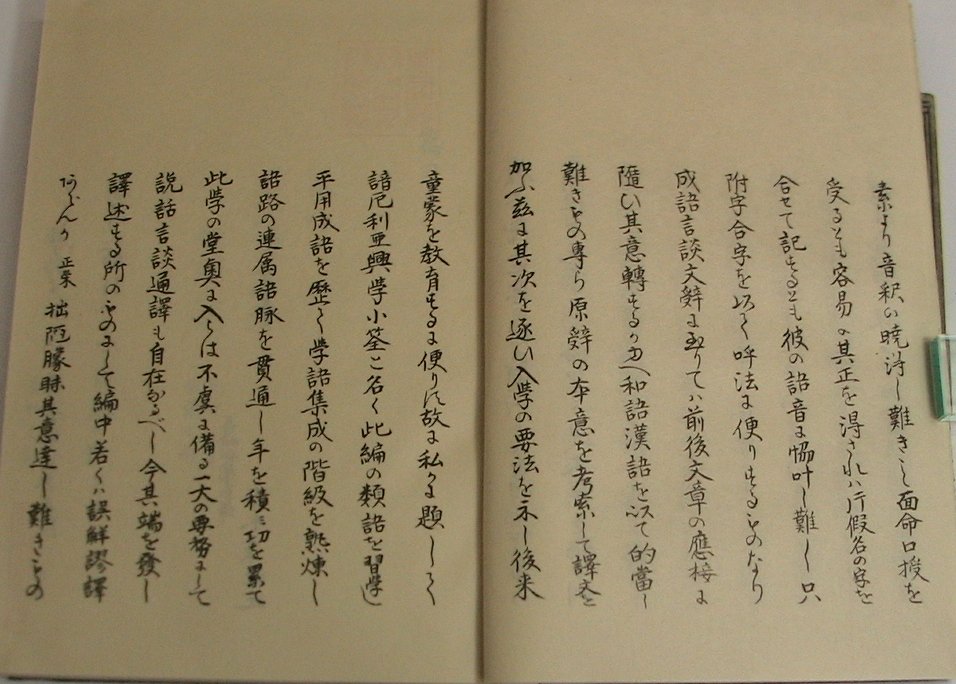 素より音釈の暁得し難きし面命口授を
受るとも容易く其正を得されハ片假名の字を
合せて記するとも彼の語音に恊叶し難し只
附字合字を以て呼法に便りするものなり
成語言談文辞に至りてハ前後文章の應接に
隨ひ其意轉するか也和語漢語を以て的當し
難きもの專ら原辞の本意を考索して譯文を
加ふ茲に其次を逐ひ入學の要法を示し後来
童蒙を教育するに便りす故に私かに題して
諳厄利亜興學小筌と名く此編の類語を習學し
平用成語を歴て学語集成の階級を熟煉し
語路の連属語脉を貫通し年を積ミ功を累て
此学の堂奥に入らは不虞に備る一大の要務にして
説話言談通譯も自在なるべし今其端を發し
譯述する所のものにして編中若くハ誤鮮謬譯
あらんか 正栄 拙陋矇昧其意達し難きもの